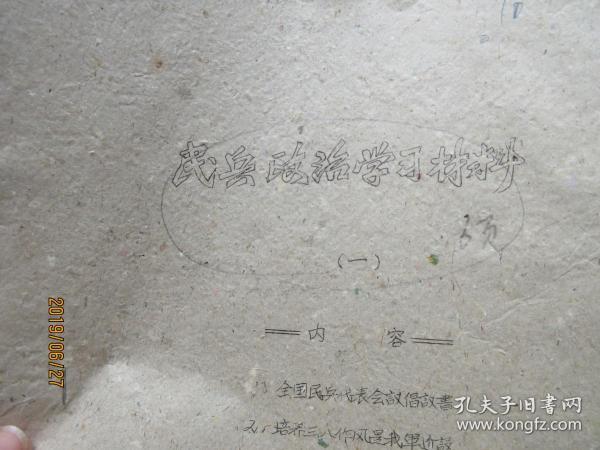 民兵政治学习材料
页
(一)
══内 容══
1、全国民兵代表会议倡议书
2、培养三八作风是我军近
2019/06/27
孔夫子旧书网
www.kongfz.com